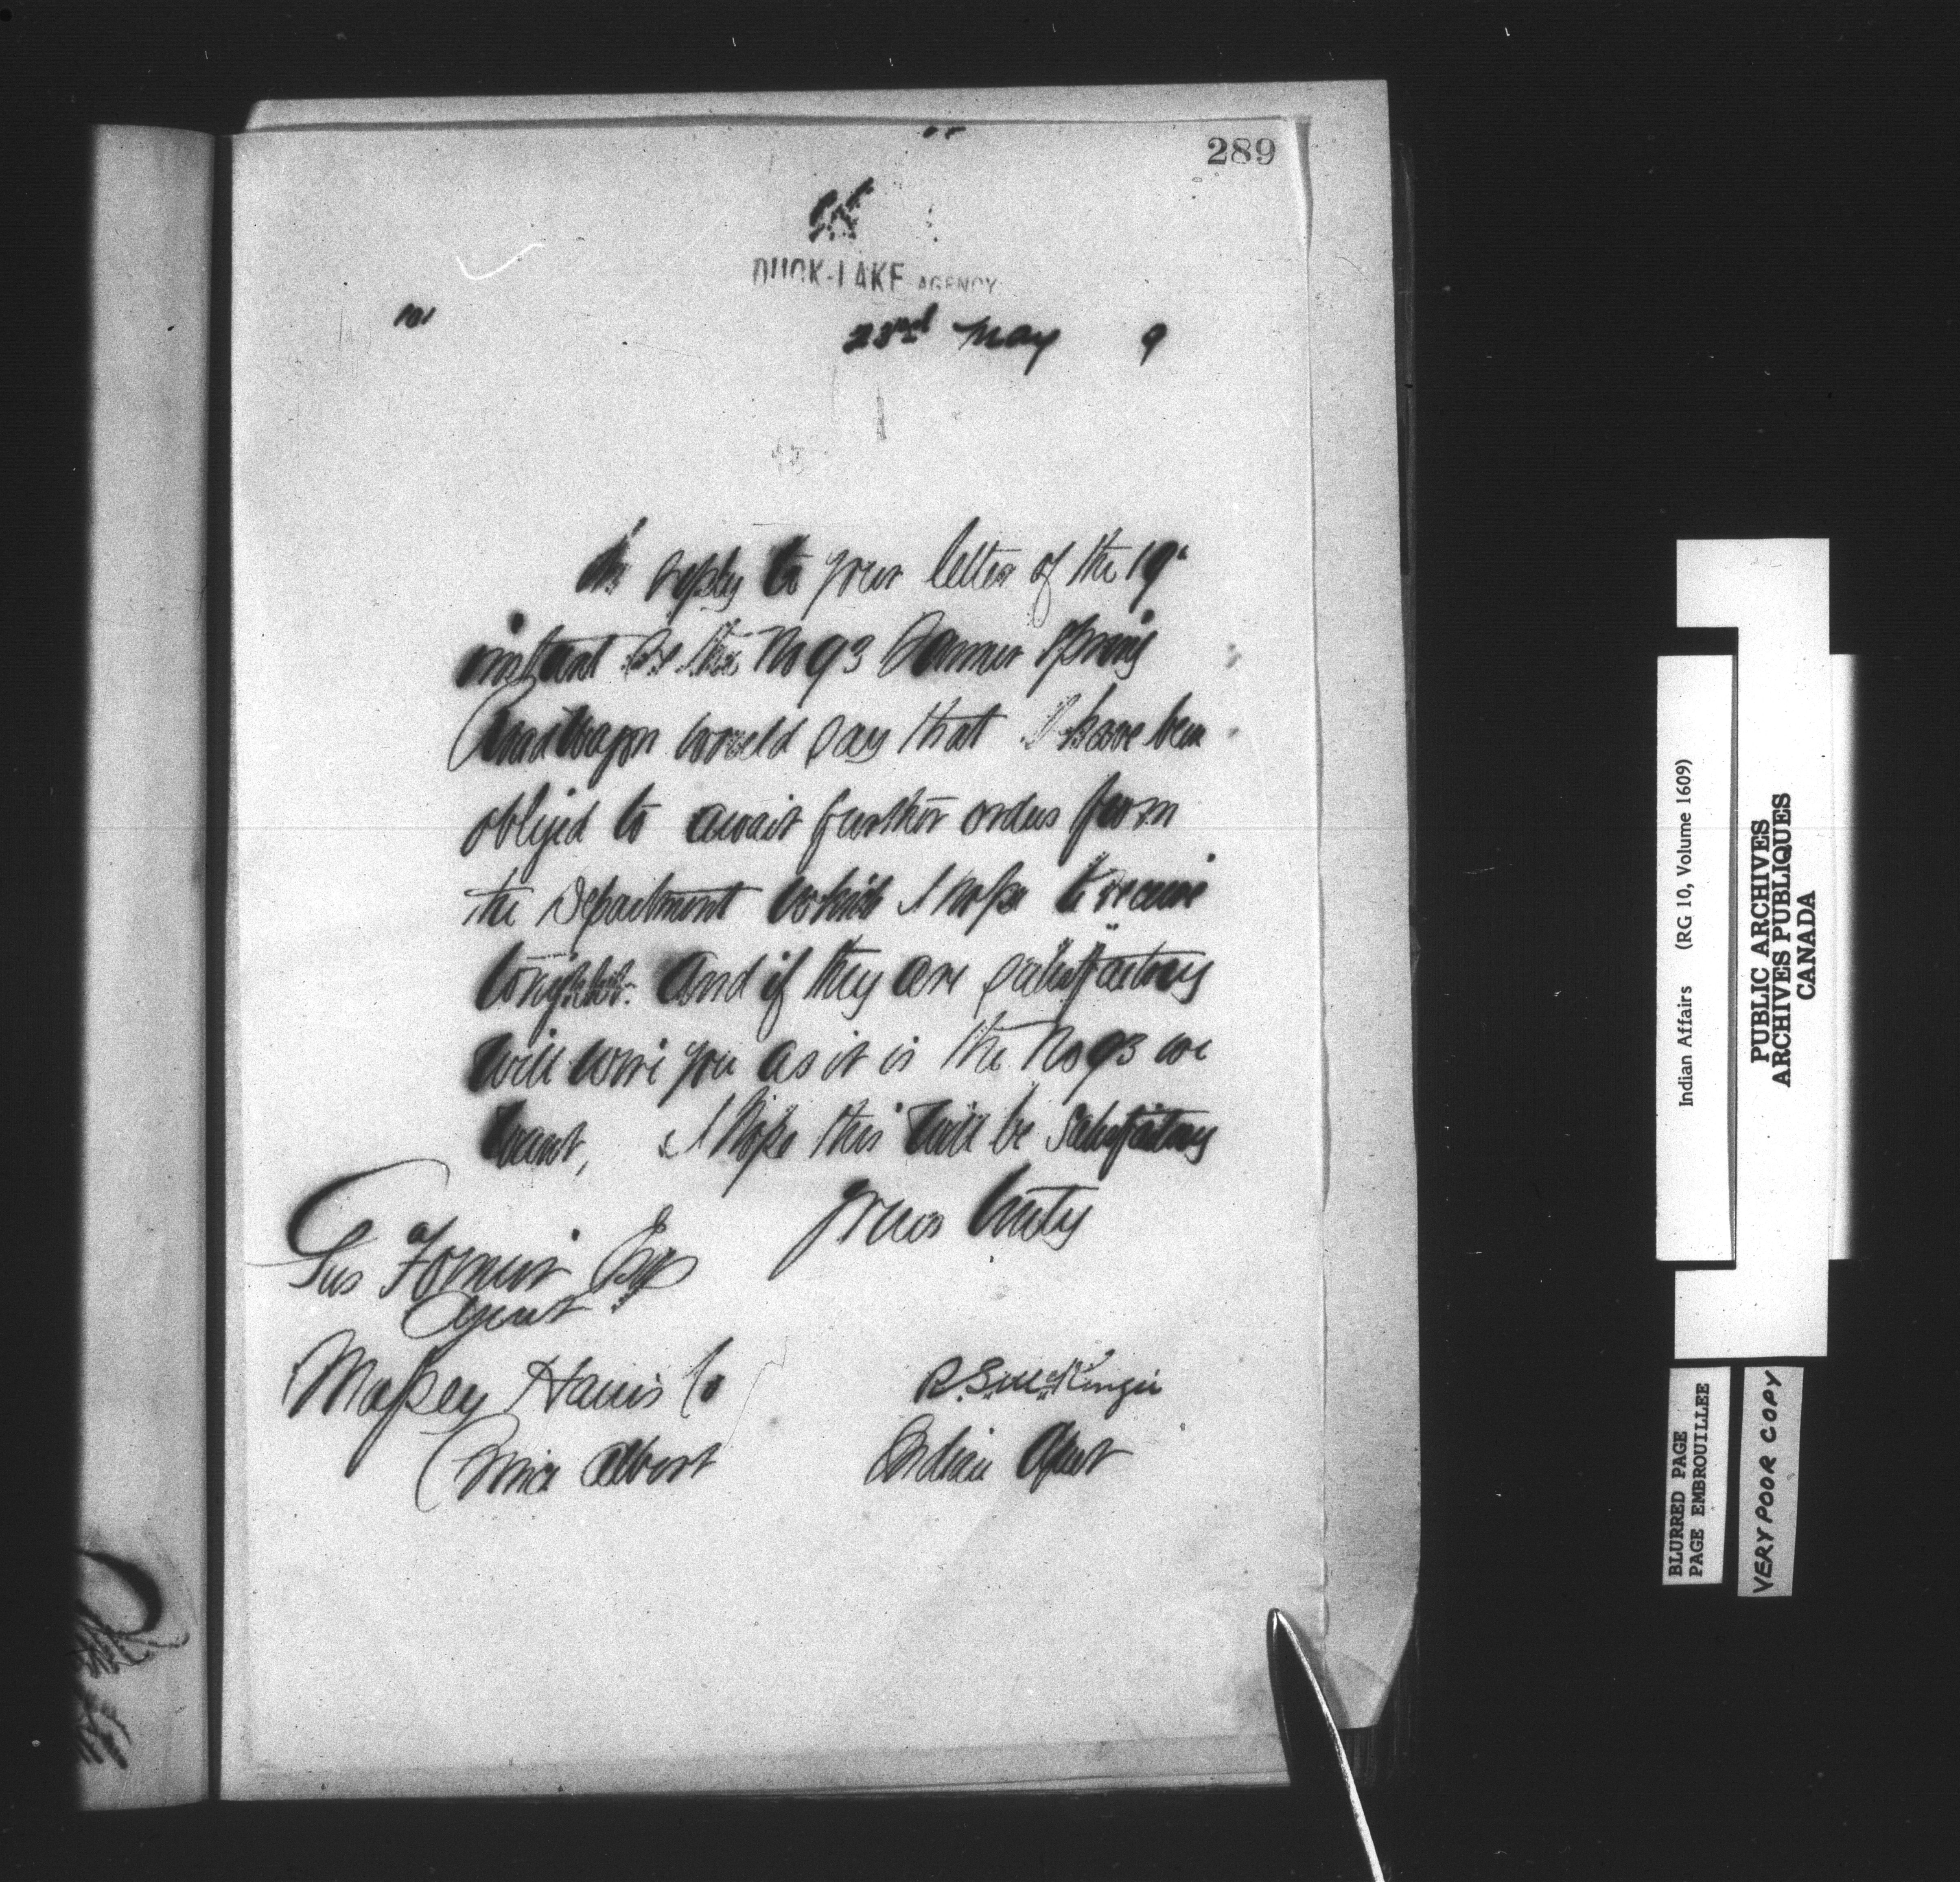 289
DUCK-LAKE AGENCY
101
23rd May 9
In reply to your letter of the 19"
instant re the No 93 Spring
wagon would say that I have been
obliged to await further orders from
the Department which I hope to receive
tonight. And if they are satisfactory
will wire you as it is the No 93 we
want, I hope this will be satisfactory
Yours truly
Esq
Agent
Massey Harris Co
Prince Albert
R.S. McKenzie
Indian Agent
Indian Affairs (RG 10, Volume 1609)
PUBLIC ARCHIVES
ARCHIVES PUBLIQUES
CANADA
BLURRED PAGE
PAGE EMBROUILLEE
VERY POOR COPY